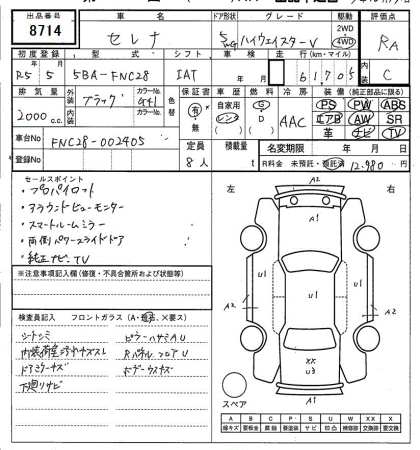 出品番号 車名 ドア形状 グレード 駆動 評価点
8714 セレナ 5 ハイウェイスターV 2WD 4WD RA
初度登録 型式 シフト 車検 走行(km・マイル) 内装
R5年5月 5BA-FNC28 IAT 年 月 6,170 C
排気量 外装色 カラーNo. 色替 保証書 車歴 燃料 冷房 装備(純正部品に限る)
2000c.c. ブラック G41 有・無 自家用 レンタ G D AAC PS PW ABS
エアB AW SR
革 ナビ TV
車台No FNC28-002405 定員 積載量 名変期限 年 月 日
登録No 8人 t R料金 未預託・預託済 12,980円
セールスポイント
・プロパイロット
・アラウンドビューモニター
・スマートルームミラー
・両側パワースライドドア
・純正ナビ-TV
※注意事項記入欄(修復・不具合箇所および状態等)
検査員記入 フロントガラス(A・飛石、×要ス)
シートシミ
ドアミラーキズ
下廻りサビ
左 右
A2
A1
U1 U1 U1
A2 A2
XX
U3
A1
スペア
A B C P S U W X XX
線キズ 要鈑金 腐蝕 要塗装 サビ 凹 補修跡 要交換 交換済